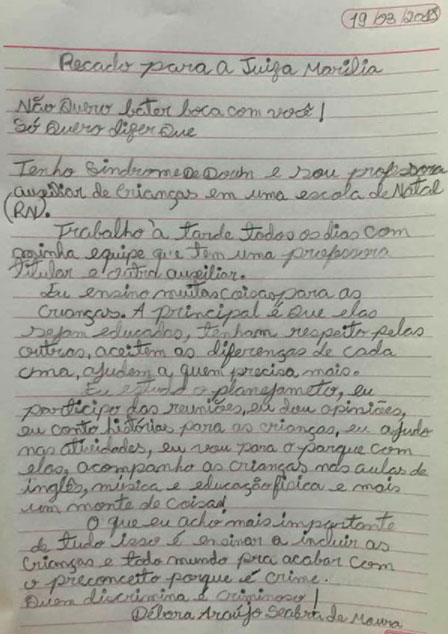 19/03/2018
Recado para a Juiza Marilia
Não Quero bater boca com você!
Só Quero dizer Que
Tenho Sindrome De Down e sou professora
auxiliar de Crianças em uma escola de Natal
(RN).
Trabalho à tarde todos os dias com
minha equipe que tem uma professora
titular e outra auxiliar.
Eu ensino muitas coisas para as
crianças. A principal é Que elas
sejam educadas, tenham respeito pelas
outras, aceitem as diferenças de cada
uma, ajudem a quem precisa mais.
Eu estudo o planejameto, eu
participo das reuniões, eu dou opiniões,
eu conto histórias para as crianças, eu ajudo
nas atividades, eu vou para o parque com
elas, acompanho as crianças nas aulas de
inglês, música e educação física e mais
um monte de coisas!
O que eu acho mais importante
de tudo isso é ensinar a incluir as
crianças e todo mundo pra acabar com
o preconceito porque é crime.
Quem discrimina é criminoso!
Débora Araújo Seabra de Moura